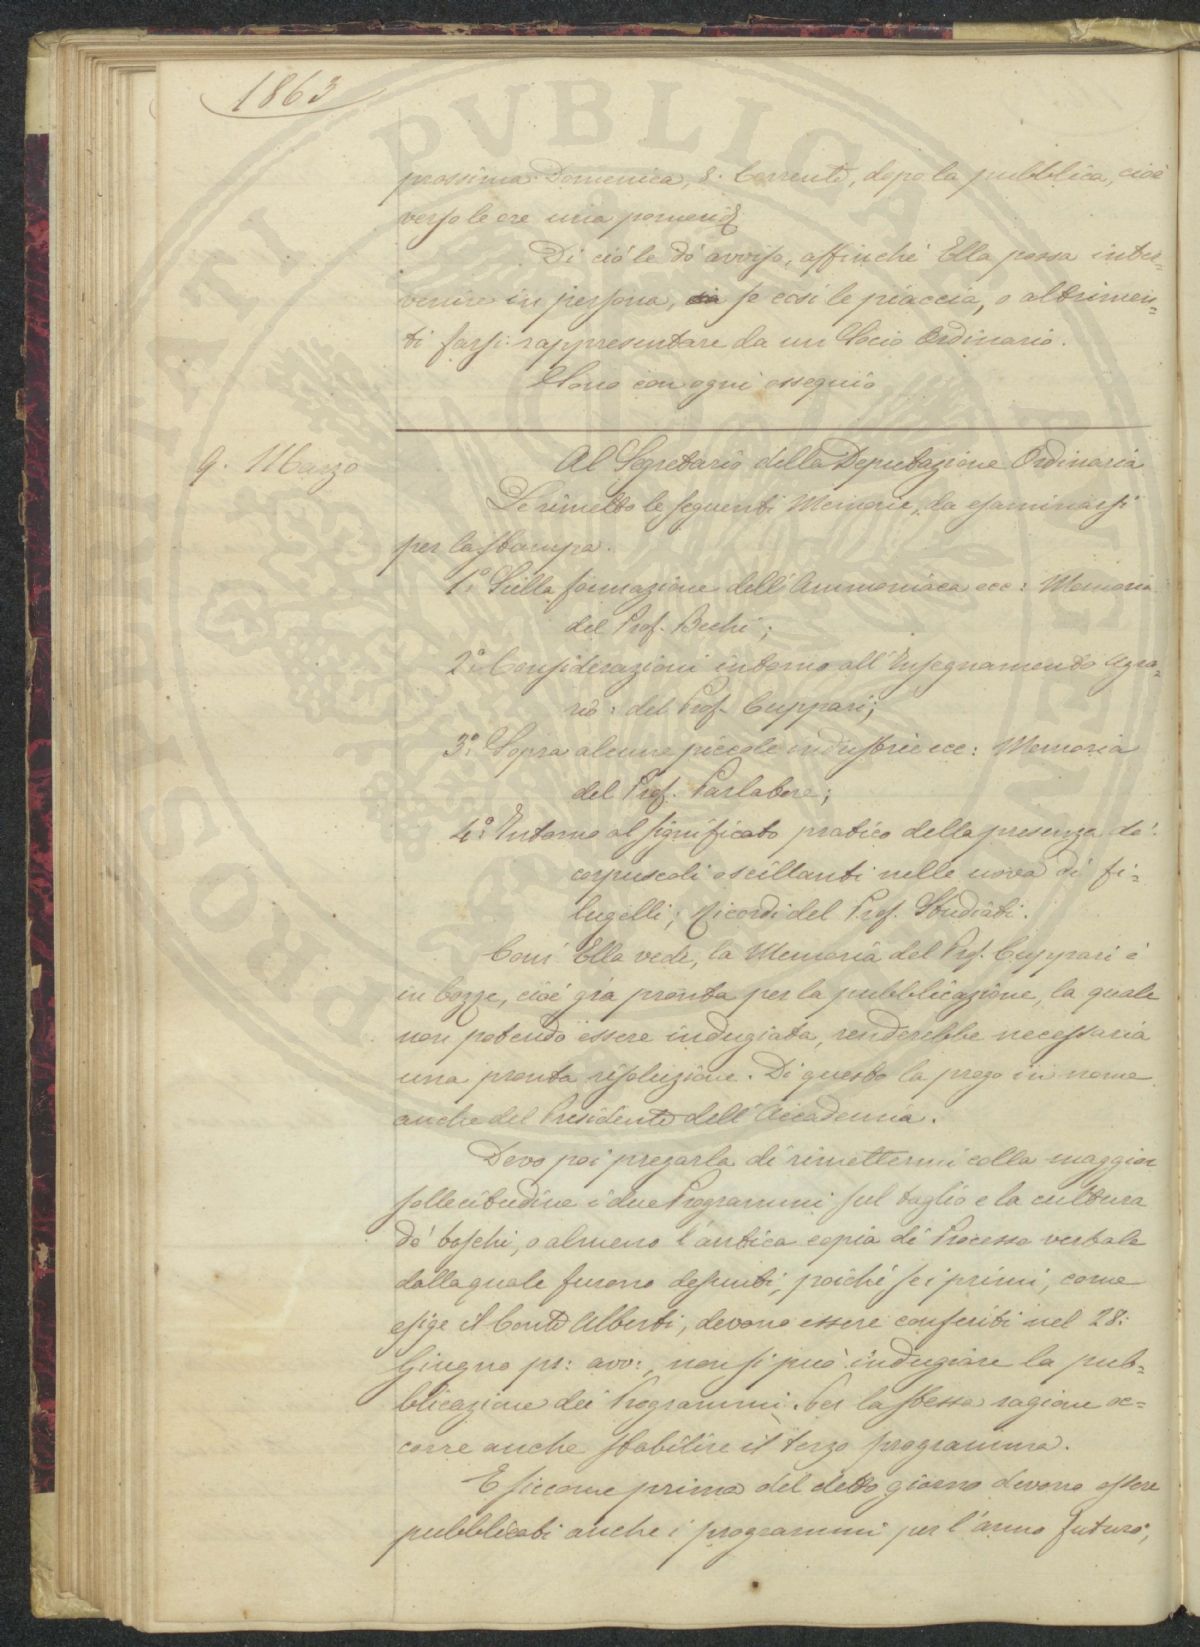 1863
prossima Domenica, 8. Corrente, dopo la pubblica, cioè
verso le ore una pomerid.
Di ciò le dò avviso, affinché Ella possa inter=
venire in persona, se così le piaccia, o altrimen=
ti farsi rappresentare da un Socio Ordinario.
Sono con ogni ossequio
9. Marzo
Al Segretario della Deputazione Ordinaria
Le rimetto le seguenti Memorie, da esaminarsi
per la stampa.
1.° Sulla formazione dell'Ammoniaca ecc: Memoria
del Prof. Bechi;
2.° Considerazioni intorno all'Insegnamento Agra=
rio: del Prof. Cuppari;
3.° Sopra alcune piccole industrie ecc: Memoria
del Prof. Parlatore;
4.° Intorno al significato pratico della presenza de'
corpuscoli oscillanti nelle uova di fi=
lugelli; Ricordi del Prof. Studiati.
Com' Ella vede, la Memoria del Prof. Cuppari è
in bozze, cioè già pronta per la pubblicazione, la quale
non potendo essere indugiata, renderebbe necessaria
una pronta risoluzione. Di questo la prego in nome
anche del Presidente dell'Accademia.
Devo poi pregarla di rimettermi colla maggior
sollecitudine i due Programmi sul taglio e la cultura
de' boschi, o almeno l'antica copia di Processo verbale
dalla quale furono desunti, poiché se i primi, come
esige il Conte Alberti, devono essere conferiti nel 28:
Giugno pr: avv:, non si può indugiare la pub=
blicazione dei Programmi. Per la stessa ragione oc=
corre anche stabilire il terzo programma.
E siccome prima del detto giorno devono essere
pubblicati anche i programmi per l'anno futuro,
PUBLICAE
PROSPERITATI